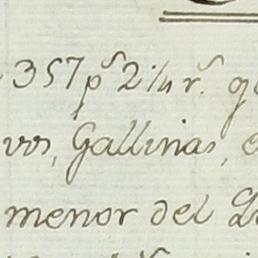 357 p.s 2 1/4 r.s
vos, Gallinas,
menor del